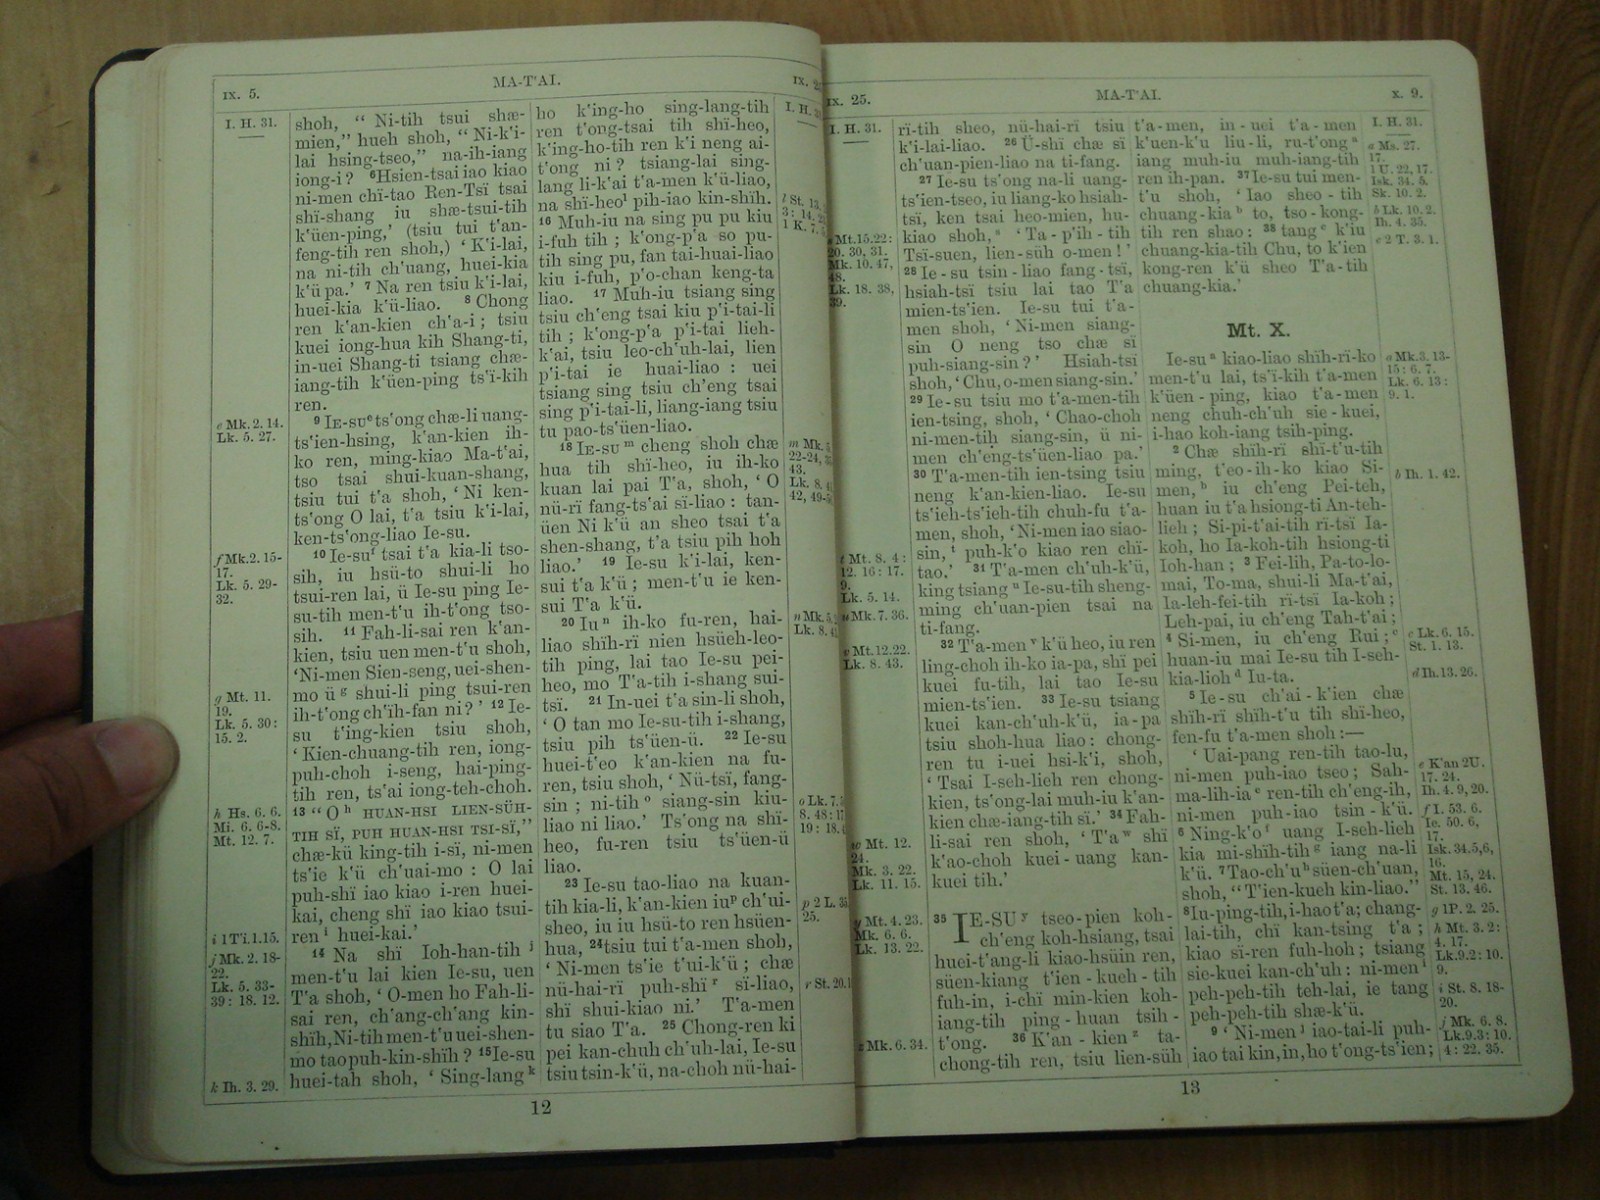 IX. 5.
MA-T'AI.
I. H. 31.
e Mk. 2. 14.
Lk. 5. 27.
f Mk. 2. 15-
17.
Lk. 5. 29-
32.
g Mt. 11.
19.
Lk. 5. 30:
15. 2.
h Hs. 6. 6.
Mi. 6. 6-8.
Mt. 12. 7.
i 1 Ti. 1. 15.
j Mk. 2. 18-
22.
Lk. 5. 33-
39: 18. 12.
k Ih. 3. 29.
shoh, “ Ni-tih tsui shæ-
mien,” hueh shoh, “ Ni-k'i-
lai hsing-tseo,” na-ih-iang
iong-i? ⁶Hsien-tsai iao kiao
ni-men chï-tao Ren-Tsï tsai
shï-shang iu shæ-tsui-tih
k'üen-ping,’ (tsiu tui t'an-
feng-tih ren shoh,) ‘ K'i-lai,
na ni-tih ch'uang, huei-kia
k'ü pa.’ ⁷ Na ren tsiu k'i-lai,
huei-kia k'ü-liao. ⁸ Chong
ren k'an-kien ch'a-i; tsiu
kuei iong-hua kih Shang-ti,
in-uei Shang-ti tsiang chæ-
iang-tih k'üen-ping ts'ï-kih
ren.
⁹ IE-SUᵉ ts'ong chæ-li uang-
ts'ien-hsing, k'an-kien ih-
ko ren, ming-kiao Ma-t'ai,
tso tsai shui-kuan-shang,
tsiu tui t'a shoh, ‘ Ni ken-
ts'ong O lai, t'a tsiu k'i-lai,
ken-ts'ong-liao Ie-su.
¹⁰ Ie-suᶠ tsai t'a kia-li tso-
sih, iu hsü-to shui-li ho
tsui-ren lai, ü Ie-su ping Ie-
su-tih men-t'u ih-t'ong tso-
sih. ¹¹ Fah-li-sai ren k'an-
kien, tsiu uen men-t'u shoh,
‘Ni-men Sien-seng, uei-shen-
mo ü ᵍ shui-li ping tsui-ren
ih-t'ong ch'ïh-fan ni?’ ¹² Ie-
su t'ing-kien tsiu shoh,
‘ Kien-chuang-tih ren, iong-
puh-choh i-seng, hai-ping-
tih ren, ts'ai iong-teh-choh.
¹³ “ Oʰ HUAN-HSI LIEN-SÜH-
TIH SÏ, PUH HUAN-HSI TSI-SÏ,”
chæ-kü king-tih i-sï, ni-men
ts'ie k'ü ch'uai-mo: O lai
puh-shï iao kiao i-ren huei-
kai, cheng shï iao kiao tsui-
renⁱ huei-kai.’
¹⁴ Na shï Ioh-han-tih ʲ
men-t'u lai kien Ie-su, uen
T'a shoh, ‘ O-men ho Fah-li-
sai ren, ch'ang-ch'ang kin-
shïh, Ni-tih men-t'u uei-shen-
mo tao puh-kin-shïh? ¹⁵Ie-su
huei-tah shoh, ‘ Sing-langᵏ
ho k'ing-ho sing-lang-tih
ren t'ong-tsai tih shï-heo,
k'ing-ho-tih ren k'i neng ai-
t'ong ni? tsiang-lai sing-
lang li-k'ai t'a-men k'ü-liao,
na shï-heoˡ pih-iao kin-shïh.
¹⁶ Muh-iu na sing pu pu kiu
i-fuh tih; k'ong-p'a so pu-
tih sing pu, fan tai-huai-liao
kiu i-fuh, p'o-chan keng-ta
liao. ¹⁷ Muh-iu tsiang sing
tsiu ch'eng tsai kiu p'i-tai-li
tih; k'ong-p'a p'i-tai lieh-
k'ai, tsiu leo-ch'uh-lai, lien
p'i-tai ie huai-liao: uei
tsiang sing tsiu ch'eng tsai
sing p'i-tai-li, liang-iang tsiu
tu pao-ts'üen-liao.
¹⁸ IE-SUᵐ cheng shoh chæ
hua tih shï-heo, iu ih-ko
kuan lai pai T'a, shoh, ‘ O
nü-rï fang-ts'ai sï-liao: tan-
üen Ni k'ü an sheo tsai t'a
shen-shang, t'a tsiu pih hoh
liao.’ ¹⁹ Ie-su k'i-lai, ken-
sui t'a k'ü; men-t'u ie ken-
sui T'a k'ü.
²⁰ Iuⁿ ih-ko fu-ren, hai-
liao shïh-rï nien hsüeh-leo-
tih ping, lai tao Ie-su pei-
heo, mo T'a-tih i-shang sui-
tsï. ²¹ In-uei t'a sin-li shoh,
‘ O tan mo Ie-su-tih i-shang,
tsiu pih ts'üen-ü. ²² Ie-su
huei-t'eo k'an-kien na fu-
ren, tsiu shoh, ‘ Nü-tsï, fang-
sin; ni-tihᵒ siang-sin kiu-
liao ni liao.’ Ts'ong na shï-
heo, fu-ren tsiu ts'üen-ü
liao.
²³ Ie-su tao-liao na kuan-
tih kia-li, k'an-kien iuᵖ ch'ui-
sheo, iu iu hsü-to ren hsüen-
hua, ²⁴tsiu tui t'a-men shoh,
‘ Ni-men ts'ie t'ui-k'ü; chæ
nü-hai-rï puh-shïʳ sï-liao,
shï shui-kiao ni.’ T'a-men
tu siao T'a. ²⁵ Chong-ren ki
pei kan-chuh ch'uh-lai, Ie-su
tsiu tsin-k'ü, na-choh nü-hai-
I. H.
l St. 13.
1 K. 7.
m Mk.
22-24,
43.
Lk. 8.
n Mk.
Lk. 8.
o Lk. 7.
p 2 L. 35.
25.
r St. 20.
12
IX. 25.
MA-T'AI.
X. 9.
I. H. 31.
s Mt. 15. 22:
20. 30, 31.
Mk. 10. 47,
48.
Lk. 18. 38,
39.
t Mt. 8. 4:
12. 16: 17.
9.
Lk. 5. 14.
u Mk. 7. 36.
v Mt. 12. 22.
Lk. 8. 43.
w Mt. 12.
24.
Mk. 3. 22.
Lk. 11. 15.
y Mt. 4. 23.
Mk. 6. 6.
Lk. 13. 22.
z Mk. 6. 34.
rï-tih sheo, nü-hai-rï tsiu
k'i-lai-liao. ²⁶ Ü-shï chæ sï
ch'uan-pien-liao na ti-fang.
²⁷ Ie-su ts'ong na-li uang-
ts'ien-tseo, iu liang-ko hsiah-
tsï, ken tsai heo-mien, hu-
kiao shoh,ˢ ‘ Ta-p'ih-tih
Tsï-suen, lien-süh o-men!’
²⁸ Ie-su tsin-liao fang-tsï,
hsiah-tsï tsiu lai tao T'a
mien-ts'ien. Ie-su tui t'a-
men shoh, ‘ Ni-men siang-
sin O neng tso chæ sï
puh-siang-sin?’ Hsiah-tsï
shoh, ‘ Chu, o-men siang-sin.’
²⁹ Ie-su tsiu mo t'a-men-tih
ien-tsing, shoh, ‘ Chao-choh
ni-men-tih siang-sin, ü ni-
men ch'eng-ts'üen-liao pa.’
³⁰ T'a-men-tih ien-tsing tsiu
neng k'an-kien-liao. Ie-su
ts'ieh-ts'ieh-tih chuh-fu t'a-
men, shoh, ‘ Ni-men iao siao-
sin,ᵗ puh-k'o kiao ren chï-
tao.’ ³¹ T'a-men ch'uh-k'ü,
king tsiangᵘ Ie-su-tih sheng-
ming ch'uan-pien tsai na
ti-fang.
³² T'a-menᵛ k'ü heo, iu ren
ling-choh ih-ko ia-pa, shï pei
kuei fu-tih, lai tao Ie-su
mien-ts'ien. ³³ Ie-su tsiang
kuei kan-ch'uh-k'ü, ia-pa
tsiu shoh-hua liao: chong-
ren tu i-uei hsi-k'i, shoh,
‘ Tsai I-seh-lieh ren chong-
kien, ts'ong-lai muh-iu k'an-
kien chæ-iang-tih sï.’ ³⁴ Fah-
li-sai ren shoh, ‘ T'aʷ shï
k'ao-choh kuei-uang kan-
kuei tih.’
³⁵ IE-SUʸ tseo-pien koh-
ch'eng koh-hsiang, tsai
huei-t'ang-li kiao-hsüin ren,
süen-kiang t'ien-kueh-tih
fuh-in, i-chï min-kien koh-
iang-tih ping-huan tsih-
t'ong. ³⁶ K'an-kienᶻ ta-
chong-tih ren, tsiu lien-süh
t'a-men, in-uei t'a-men
k'uen-k'u liu-li, ru-t'ongᵃ
iang muh-iu muh-iang-tih
ren ih-pan. ³⁷ Ie-su tui men-
t'u shoh, ‘ Iao sheo-tih
chuang-kiaᵇ to, tso-kong-
tih ren shao: ³⁸ tangᶜ k'iu
chuang-kia-tih Chu, to k'ien
kong-ren k'ü sheo T'a-tih
chuang-kia.’
Mt. X.
Ie-suᵃ kiao-liao shïh-rï-ko
men-t'u lai, ts'ï-kih t'a-men
k'üen-ping, kiao t'a-men
neng chuh-ch'uh sie-kuei,
i-hao koh-iang tsih-ping.
² Chæ shïh-rï shï-t'u-tih
ming, t'eo-ih-ko kiao Si-
men,ᵇ iu ch'eng Pei-teh,
huan iu t'a hsiong-ti An-teh-
lieh; Si-pi-t'ai-tih rï-tsï Ia-
koh, ho Ia-koh-tih hsiong-ti
Ioh-han; ³ Fei-lih, Pa-to-lo-
mai, To-ma, shui-li Ma-t'ai,
Ia-leh-fei-tih rï-tsï Ia-koh;
Leh-pai, iu ch'eng Tah-t'ai;
⁴ Si-men, iu ch'eng Rui;ᶜ
huan-iu mai Ie-su tih I-seh-
kia-liohᵈ Iu-ta.
⁵ Ie-su ch'ai-k'ien chæ
shïh-rï shïh-t'u tih shï-heo,
fen-fu t'a-men shoh:—
‘ Uai-pang ren-tih tao-lu,
ni-men puh-iao tseo; Sah-
ma-lih-iaᵉ ren-tih ch'eng-ih,
ni-men puh-iao tsin-k'ü.
⁶ Ning-k'oᶠ uang I-seh-lieh
kia mi-shïh-tihᵍ iang na-li
k'ü. ⁷Tao-ch'uʰ süen-ch'uan,
shoh, “T'ien-kueh kin-liao.”
⁸Iu-ping-tih, i-hao t'a; chang-
lai-tih, chï kan-tsing t'a;
kiao sï-ren fuh-hoh; tsiang
sie-kuei kan-ch'uh: ni-menⁱ
peh-peh-tih teh-lai, ie tang
peh-peh-tih shæ-k'ü.
⁹ ‘ Ni-menʲ iao-tai-li puh-
iao tai kin, in, ho t'ong-ts'ien;
I. H. 31.
a Ms. 27.
17.
1 U. 22, 17.
Isk. 34. 5.
Sk. 10. 2.
b Lk. 10. 2.
Ih. 4. 35.
c 2 T. 3. 1.
a Mk. 3. 13-
15: 6. 7.
Lk. 6. 13:
9. 1.
b Ih. 1. 42.
c Lk. 6. 15.
St. 1. 13.
d Ih. 13. 26.
e K'an 2U.
17. 24.
Ih. 4. 9, 20.
f I. 53. 6.
Ie. 50. 6,
17.
Isk. 34. 5, 6,
16.
Mt. 15, 24.
St. 13. 46.
g 1P. 2. 25.
h Mt. 3. 2:
4. 17.
Lk. 9. 2: 10.
9.
i St. 8. 18-
20.
j Mk. 6. 8.
Lk. 9. 3: 10.
4: 22. 35.
13